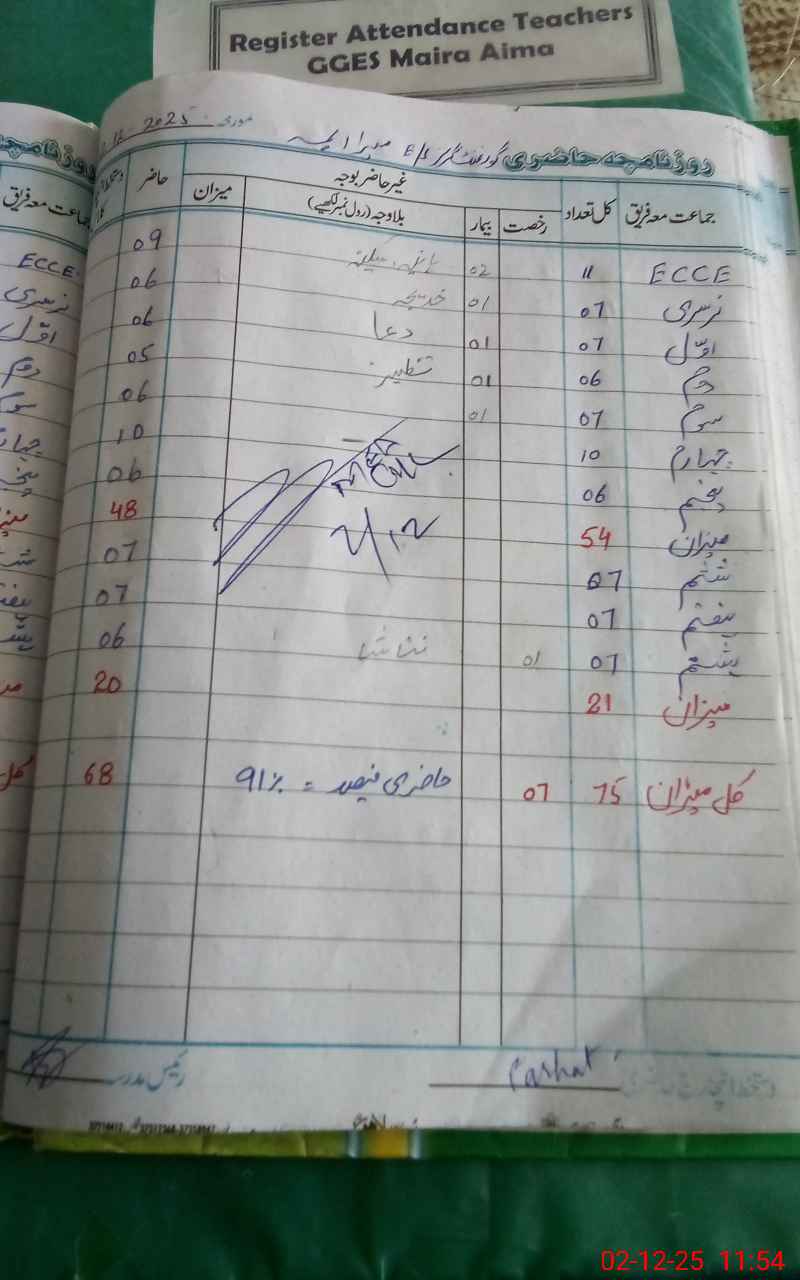 Register Attendance Teachers
GGES Maira Aima
مورخہ 2025
روزنامچہ حاضری گورنمنٹ گرلز E/S میرا ایمہ
جماعت معہ فریق کل تعداد غیر حاضر بوجہ میزان حاضر
رخصت بیمار بلاوجہ (رول نمبر لکھیے)
ECCE 11 02 09
نرسری 07 01 خدیجہ 06
اوّل 07 01 دعا 06
دوم 06 01 05
سوم 07 01 06
چہارم 10 10
پنجم 06 06
میزان 54 48
ششم 07 07
ہفتم 07 07
ہشتم 07 01 06
میزان 21 20
کل میزان 75 07 حاضری فیصد = 91% 68
2/12
رئیس مدرسہ
روزنامچہ
جماعت معہ فریق
ECCE
نرسری
اوّل
دوم
سوم
02-12-25 11:54